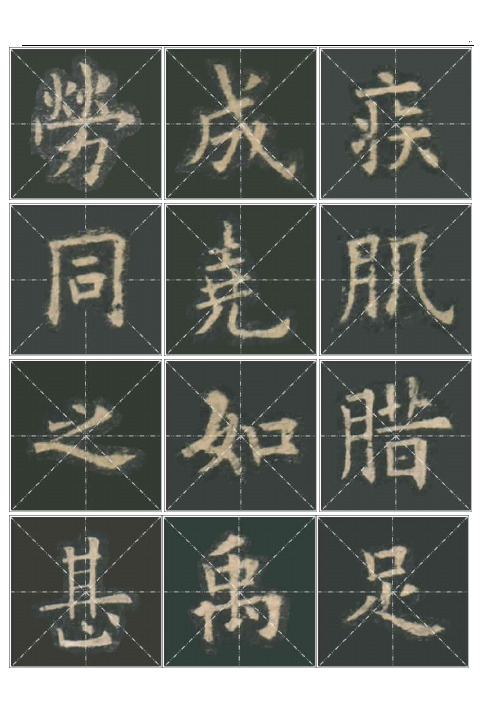 勞成疾
同堯肌
之如腊
甚禹足